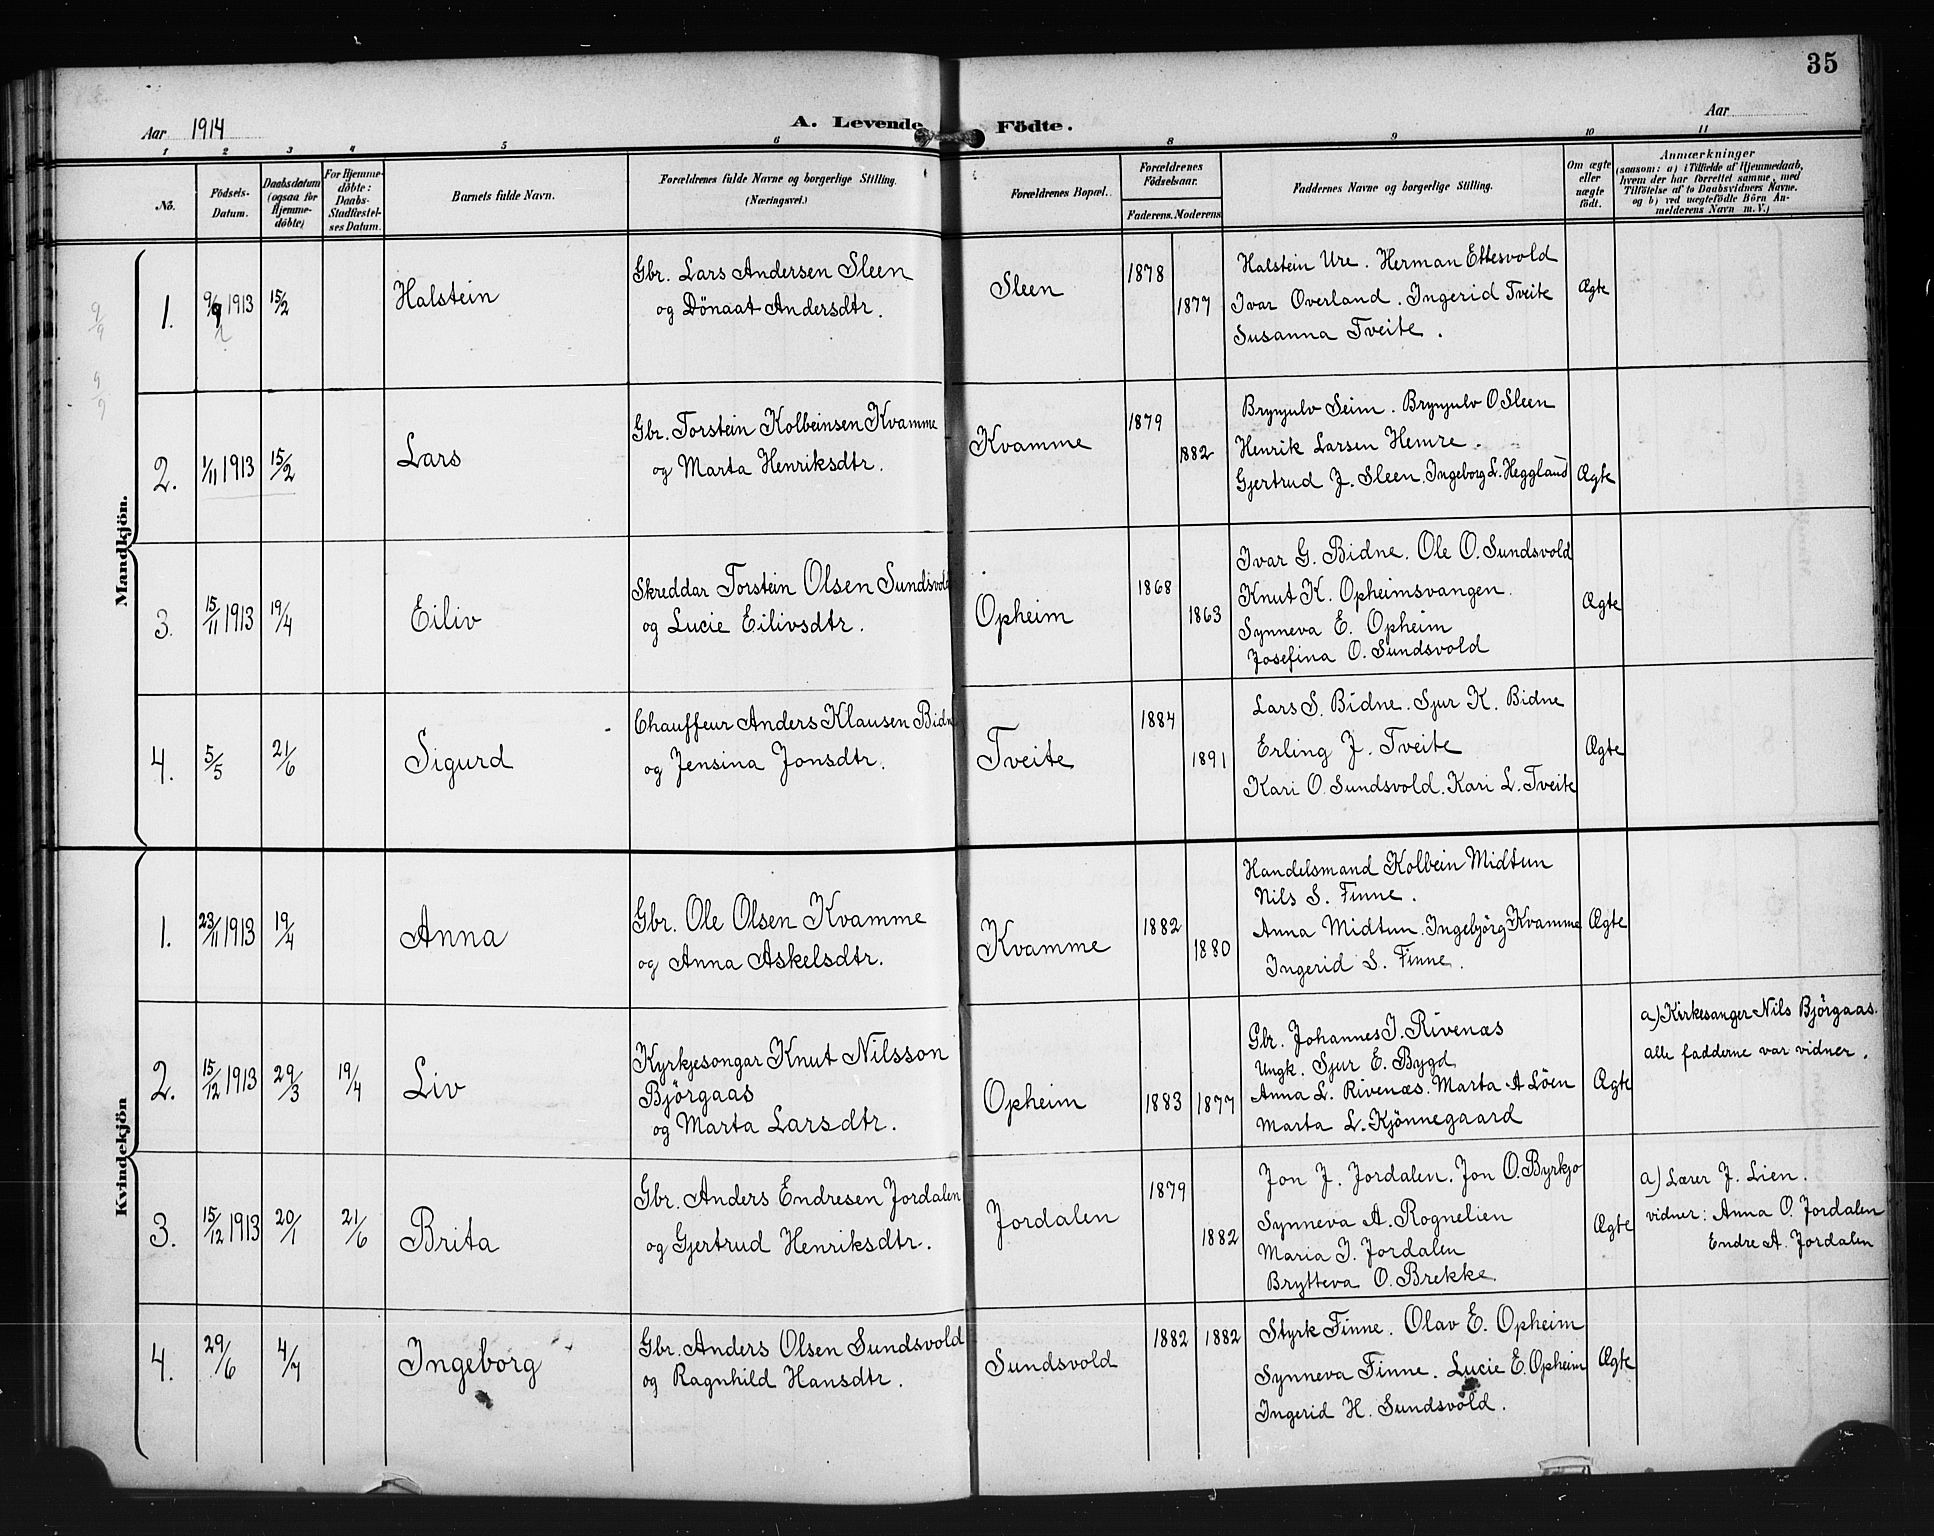 35
Aar 1914
A. Levende Födte.
Aar
1 2 3 4 5 6 8 9 10 11
No.
Födsels-Datum.
Daabsdatum (ogsaa for Hjemme-döbte)
For Hjemme-döbte: Daabs-Stadfæstel-ses Datum.
Barnets fulde Navn.
Forældrenes fulde Navne og borgerlige Stilling.
(Næringsvei.)
Forældrenes Bopæl.
Forældrenes Födselsaar.
Faderens. Moderens
Faddernes Navne og borgerlige Stilling.
Om ægte eller uægte födt.
Anmærkninger
(saasom: a) i Tilfælde af Hjemmedaab,
hvem der har forrettet samme, med
Tilföielse af to Daabsvidners Navne.
og b) ved uægtefödte Börn An-
melderens Navn m. V.)
Mandkjön.
1. 9/9 1913 15/2 Halstein
Gbr. Lars Andersen Sleen
og Dönaat Andersdtr.
Sleen 1878 1877
Halstein Ure. Herman Ettesvold
Ivar Overland. Ingerid Tveite
Susanna Tveite.
Ægte
9/9
9/9
2. 1/11 1913 15/2 Lars
Gbr. Torstein Kolbeinsen Kvamme
og Marta Henriksdtr.
Kvamme 1879 1882
Brynjulv Seim. Brynjulv O Sleen
Henrik Larsen Hemre.
Gjertrud J. Sleen. Ingeborg L. Heggland
Ægte
3. 15/11 1913 19/4 Eiliv
Skreddar Torstein Olsen Sundsvold
og Lucie Eilivsdtr.
Opheim 1868 1863
Ivar G. Bidne. Ole O. Sundsvold
Knut K. Opheimsvangen.
Synneva E. Opheim
Josefina O. Sundsvold
Ægte
4. 5/5 21/6 Sigurd
Chauffeur Anders Klausen Bidn
og Jensina Jonsdtr.
Tveite 1884 1891
Lars S. Bidne. Sjur K. Bidne
Erling J. Tveite
Kari O. Sundsvold. Kari L. Tveite
Ægte
Kvindekjön
1. 23/11 1913 19/4 Anna
Gbr. Ole Olsen Kvamme
og Anna Askelsdtr.
Kvamme 1882 1880
Handelsmand Kolbein Midtun
Nils S. Finne.
Anna Midtun. Ingebjörg Kvamme
Ingerid S. Finne.
Ægte
2. 15/12 1913 29/3 19/4 Liv
Kyrkjesongar Knut Nilsson
Björgaas
og Marta Larsdtr.
Opheim 1883 1877
Gbr. Johannes J. Rivenæs
Ungk. Sjur E. Bygd
Anna L. Rivenæs. Marta A Löen
Marta L. Kjönnegaard
Ægte
a) Kirkesanger Nils Björgaas.
alle fadderne var vidner.
3. 15/12 1913 20/1 21/6 Brita
Gbr. Anders Endresen Jordalen
og Gjertrud Henriksdtr.
Jordalen 1879 1882
Jon J. Jordalen. Jon O. Byrkjo
Synneva A. Rognelien
Maria J. Jordalen
Brytteva O. Brekke.
Ægte
a) Lærer J. Lien.
vidner: Anna O. Jordalen
Endre A. Jordalen
4. 29/6 4/7 Ingeborg
Gbr. Anders Olsen Sundsvold
og Ragnhild Hansdtr.
Sundsvold 1882 1882
Styrk Finne. Olav E. Opheim
Synneva Finne. Lucie E. Opheim
Ingerid H. Sundsvold.
Ægte